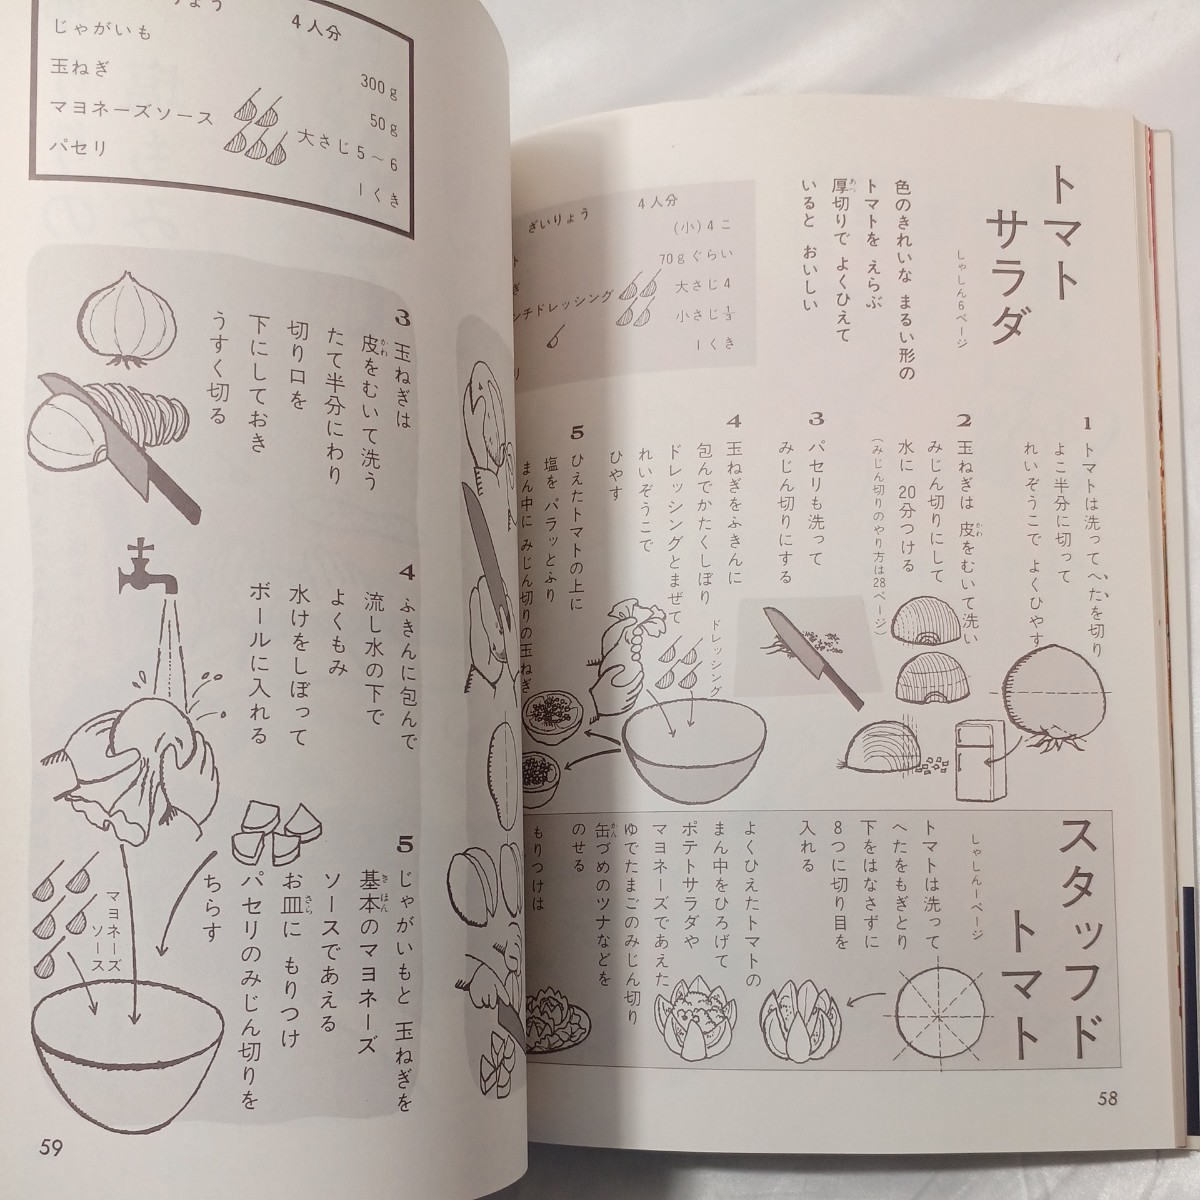 トマト
サラダ
しゃしん6ページ
色のきれいな まるい形の
トマトを えらぶ
厚切りで よくひえて
いると おいしい
ざいりょう 4人分
(小)4こ
70gぐらい
ンチドレッシング 大さじ4
小さじ⅓
1くき
1 トマトは洗ってへたを切り
よこ半分に切って
れいぞうこで よくひやす
2 玉ねぎは 皮をむいて洗い
みじん切りにして
水に 20分つける
(みじん切りのやり方は28ページ)
3 パセリも洗って
みじん切りにする
4 玉ねぎをふきんに
包んでかたくしぼり
ドレッシングとまぜて
れいぞうこで
ひやす
5 ひえたトマトの上に
塩を パラッとふり
まん中に みじん切りの玉ねぎ
ドレッシング
スタッフド
トマト
しゃしん1ページ
トマトは洗って
へたをもぎとり
下をはなさずに
8つに切り目を
入れる
よくひえたトマトの
まん中をひろげて
ポテトサラダや
マヨネーズであえた
ゆでたまごのみじん切り
缶づめのツナなどを
のせる
もりつけは
58
りょう 4人分
じゃがいも 300g
玉ねぎ 50g
マヨネーズソース 大さじ5〜6
パセリ 1くき
3 玉ねぎは
皮をむいて洗う
たて半分にわり
切り口を
下にしておき
うすく切る
4 ふきんに包んで
流し水の下で
よくもみ
水けをしぼって
ボールに入れる
5 じゃがいもと 玉ねぎを
基本のマヨネーズ
ソースであえる
お皿に もりつけ
パセリのみじん切りを
ちらす
マヨネーズ
ソース
59